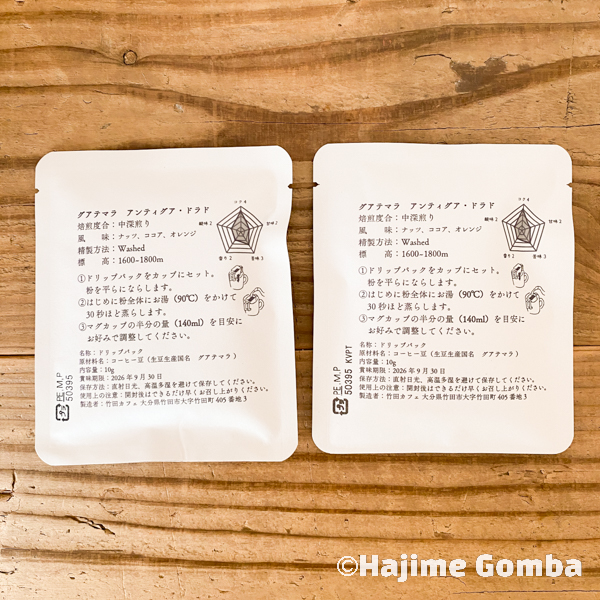 グアテマラ アンティグア・ドラド
焙煎度合：中深煎り
風　味：ナッツ、ココア、オレンジ
精製方法：Washed
標　高：1600~1800m
コク 4
酸味 2
甘味 2
香り 2
苦味 3
①ドリップパックをカップにセット。
粉を平らにならします。
②はじめに粉全体にお湯（90℃）をかけて
30秒ほど蒸らします。
③マグカップの半分の量（140ml）を目安に
お好みで調整してください。
名称：ドリップパック
原材料名：コーヒー豆（生豆生産国名　グアテマラ）
内容量：10g
賞味期限：2026年9月30日
保存方法：直射日光、高温多湿を避けて保存してください。
使用上の注意：開封後はできるだけ早くお召し上がりください。
製造者：竹田カフェ 大分県竹田市大字竹田町 405 番地 3
PE M.P
50395
グアテマラ アンティグア・ドラド
焙煎度合：中深煎り
風　味：ナッツ、ココア、オレンジ
精製方法：Washed
標　高：1600~1800m
コク 4
酸味 2
甘味 2
香り 2
苦味 3
①ドリップパックをカップにセット。
粉を平らにならします。
②はじめに粉全体にお湯（90℃）をかけて
30秒ほど蒸らします。
③マグカップの半分の量（140ml）を目安に
お好みで調整してください。
名称：ドリップパック
原材料名：コーヒー豆（生豆生産国名　グアテマラ）
内容量：10g
賞味期限：2026年9月30日
保存方法：直射日光、高温多湿を避けて保存してください。
使用上の注意：開封後はできるだけ早くお召し上がりください。
製造者：竹田カフェ 大分県竹田市大字竹田町 405 番地 3
PE M.P
50395 KVPT
©Hajime Gomba